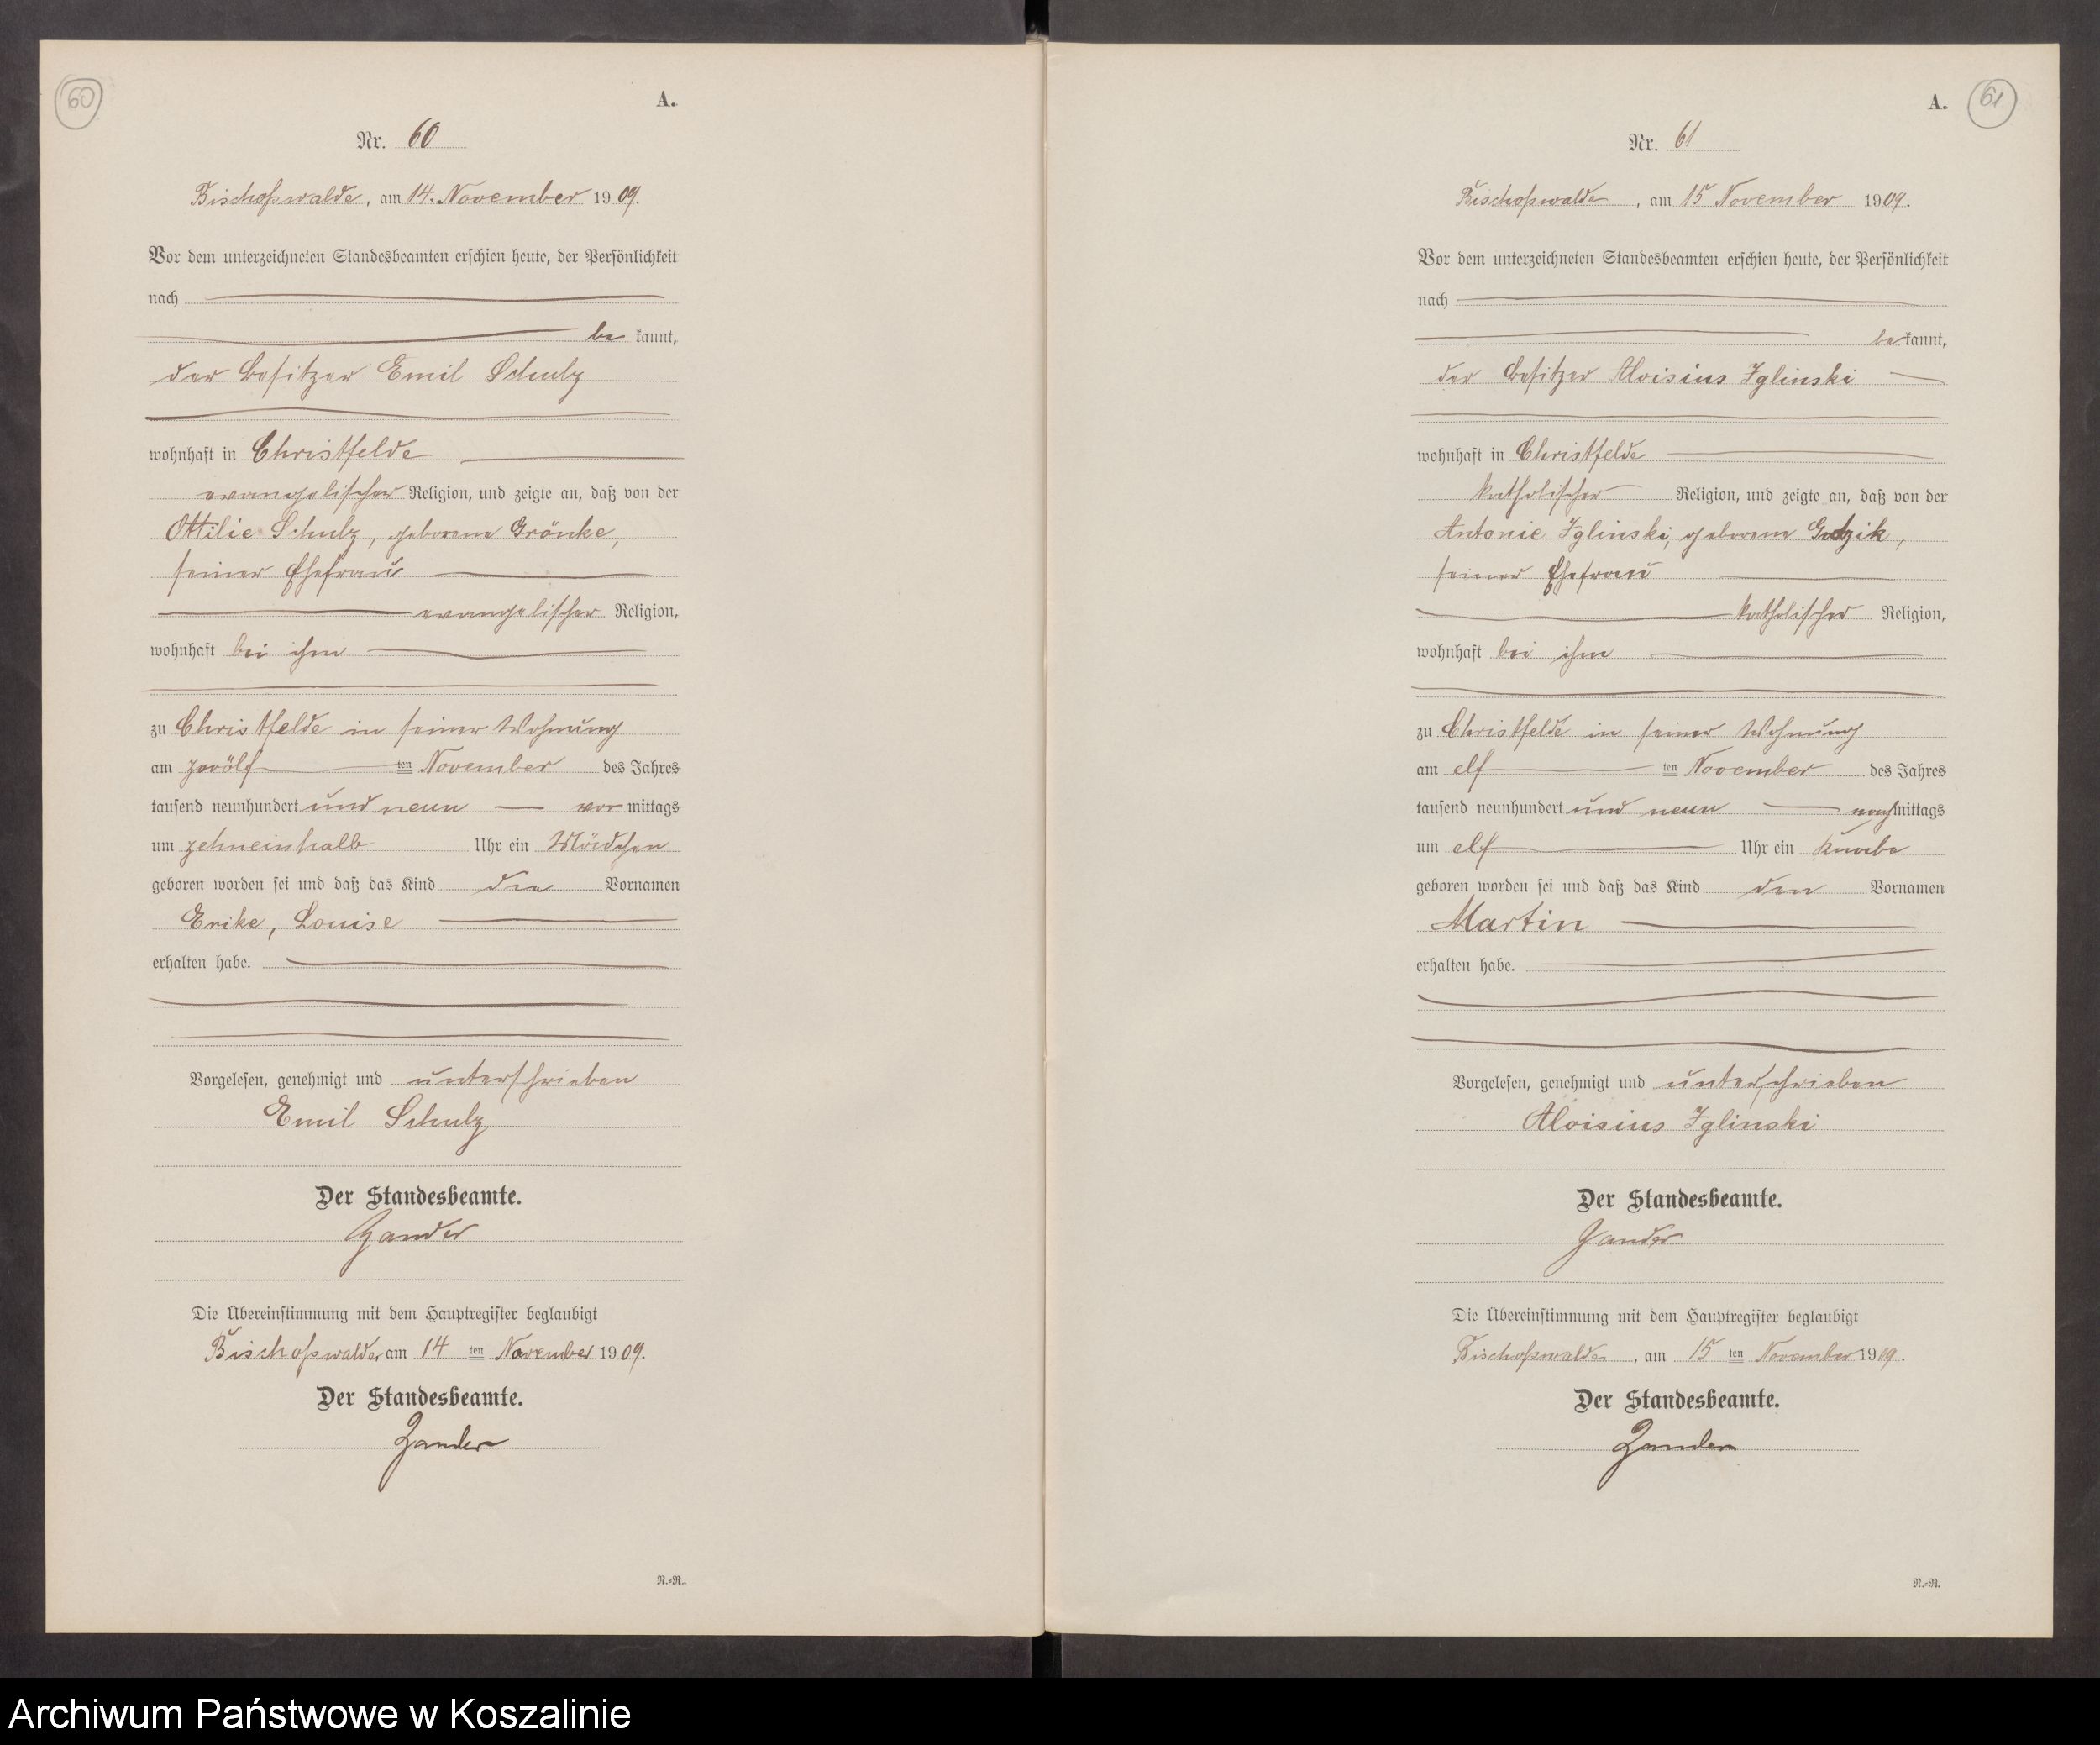 60
A.
Nr. 60
Bischofswalde, am 14. November 1909.
Vor dem unterzeichneten Standesbeamten erschien heute, der Persönlichkeit
nach
be kannt,
der Besitzer Emil Schulz
wohnhaft in Christfelde
evangelischer Religion, und zeigte an, daß von der
Ottilie Schulz, geborene Grönke,
seiner Ehefrau
evangelischer Religion,
wohnhaft bei ihm
zu Christfelde in seiner Wohnung
am zwölf ten November des Jahres
tausend neunhundert und neun vor mittags
um zehneinhalb Uhr ein Mädchen
geboren worden sei und daß das Kind die Vornamen
Erike, Louise
erhalten habe.
Vorgelesen, genehmigt und unterschrieben
Emil Schulz
Der Standesbeamte.
Zander
Die Übereinstimmung mit dem Hauptregister beglaubigt
Bischofswalde, am 14 ten November 1909.
Der Standesbeamte.
Zander
R.=R.
A.
61
Nr. 61
Bischofswalde, am 15 November 1909.
Vor dem unterzeichneten Standesbeamten erschien heute, der Persönlichkeit
nach
be kannt,
der Besitzer Aloisius Iglinski
wohnhaft in Christfelde
katholischer Religion, und zeigte an, daß von der
Antonie Iglinski, geborene Godzik,
seiner Ehefrau
katholischer Religion,
wohnhaft bei ihm
zu Christfelde in seiner Wohnung
am elf ten November des Jahres
tausend neunhundert und neun nachmittags
um elf Uhr ein Knabe
geboren worden sei und daß das Kind den Vornamen
Martin
erhalten habe.
Vorgelesen, genehmigt und unterschrieben
Aloisius Iglinski
Der Standesbeamte.
Zander
Die Übereinstimmung mit dem Hauptregister beglaubigt
Bischofswalde, am 15 ten November 1909.
Der Standesbeamte.
Zander
R.=R.
Archiwum Państwowe w Koszalinie